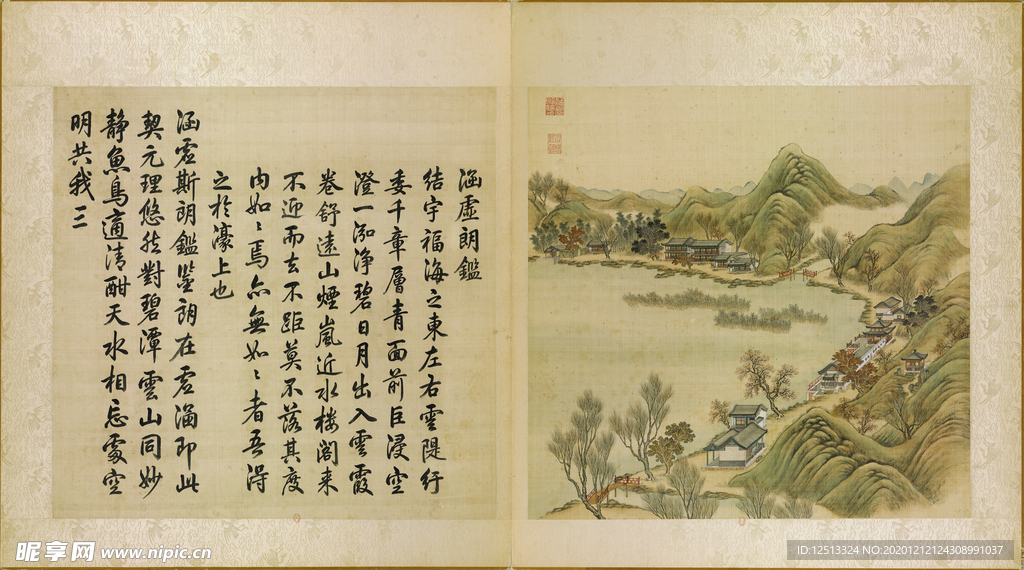 涵虛朗鑑
結宇福海之東左右雲隄紆
委千章層青面前巨浸空
澄一泓淨碧日月出入雲霞
卷舒遠山煙嵐近水樓閣來
不迎而去不距莫不落其度
内如〻焉亦無如〻者吾得
之於濠上也
涵虛斯朗鑑鑒朗在虛涵即此
契元理悠然對碧潭雲山同妙
靜魚鳥適清酣天水相忘處空
明共我三
昵享网 www.nipic.cn
ID:12513324 NO:20201212124308991037